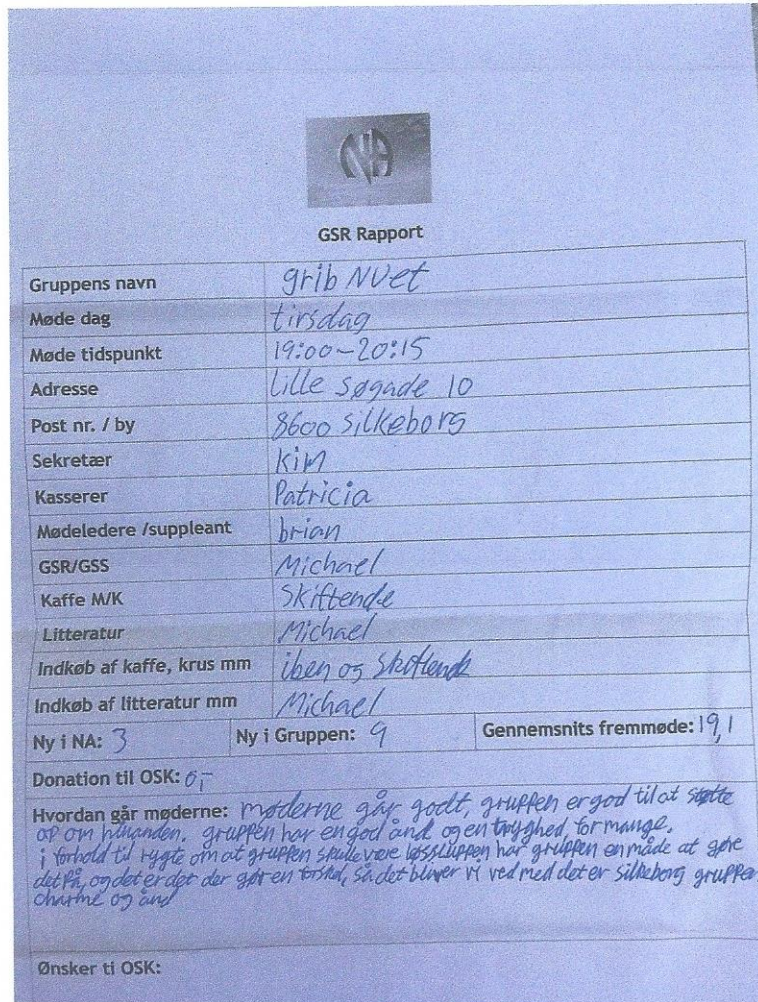 NA
GSR Rapport
Gruppens navn grib NUet
Møde dag tirsdag
Møde tidspunkt 19:00-20:15
Adresse Lille søgade 10
Post nr. / by 8600 silkeborg
Sekretær kim
Kasserer Patricia
Mødeledere /suppleant brian
GSR/GSS Michael
Kaffe M/K Skiftende
Litteratur Michael
Indkøb af kaffe, krus mm iben og skiftende
Indkøb af litteratur mm Michael
Ny i NA: 3 Ny i Gruppen: 9 Gennemsnits fremmøde: 19,1
Donation til OSK: 0,-
Hvordan går møderne: møderne går godt, gruppen er god til at støtte
op om hinanden. gruppen har en god ånd og en tryghed for mange.
i forhold til rygte om at gruppen skulle være løssluppen har gruppen en måde at gøre
det på, og det er det der gør en forskel, så det bliver vi ved med det er silkeborg gruppen
charme og ånd
Ønsker ti OSK: